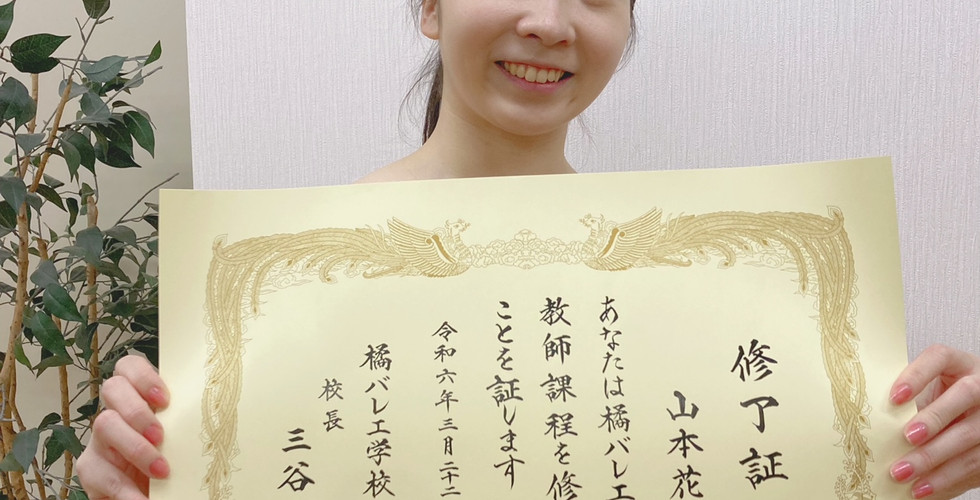 修了証
山本花
あなたは橘バレエ
教師課程を修
ことを証します
令和六年三月二十二
橘バレエ学校
校長
三谷